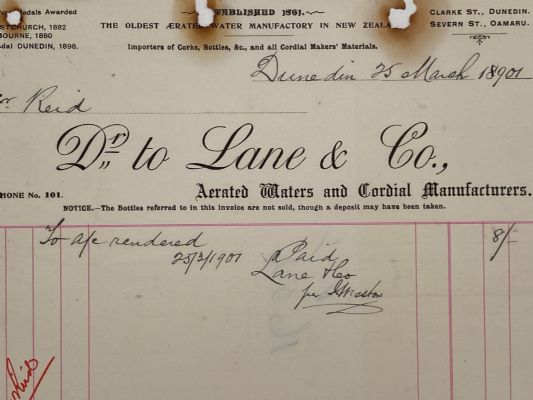 Medals Awarded
STCHURCH, 1882
BOURNE, 1880
dal DUNEDIN, 1898.
ESTABLISHED 1861.
THE OLDEST ÆRATED WATER MANUFACTORY IN NEW ZEALA
Importers of Corks, Bottles, &c., and all Cordial Makers' Materials.
CLARKE ST., DUNEDIN.
SEVERN ST., OAMARU.
Dunedin 25 March 1901
Reid
Dr. to Lane & Co.,
PHONE No. 101.
Aerated Waters and Cordial Manufacturers.
NOTICE.—The Bottles referred to in this invoice are not sold, though a deposit may have been taken.
To a/c rendered 8/-
25/3/1901 Paid
Lane & Co
per